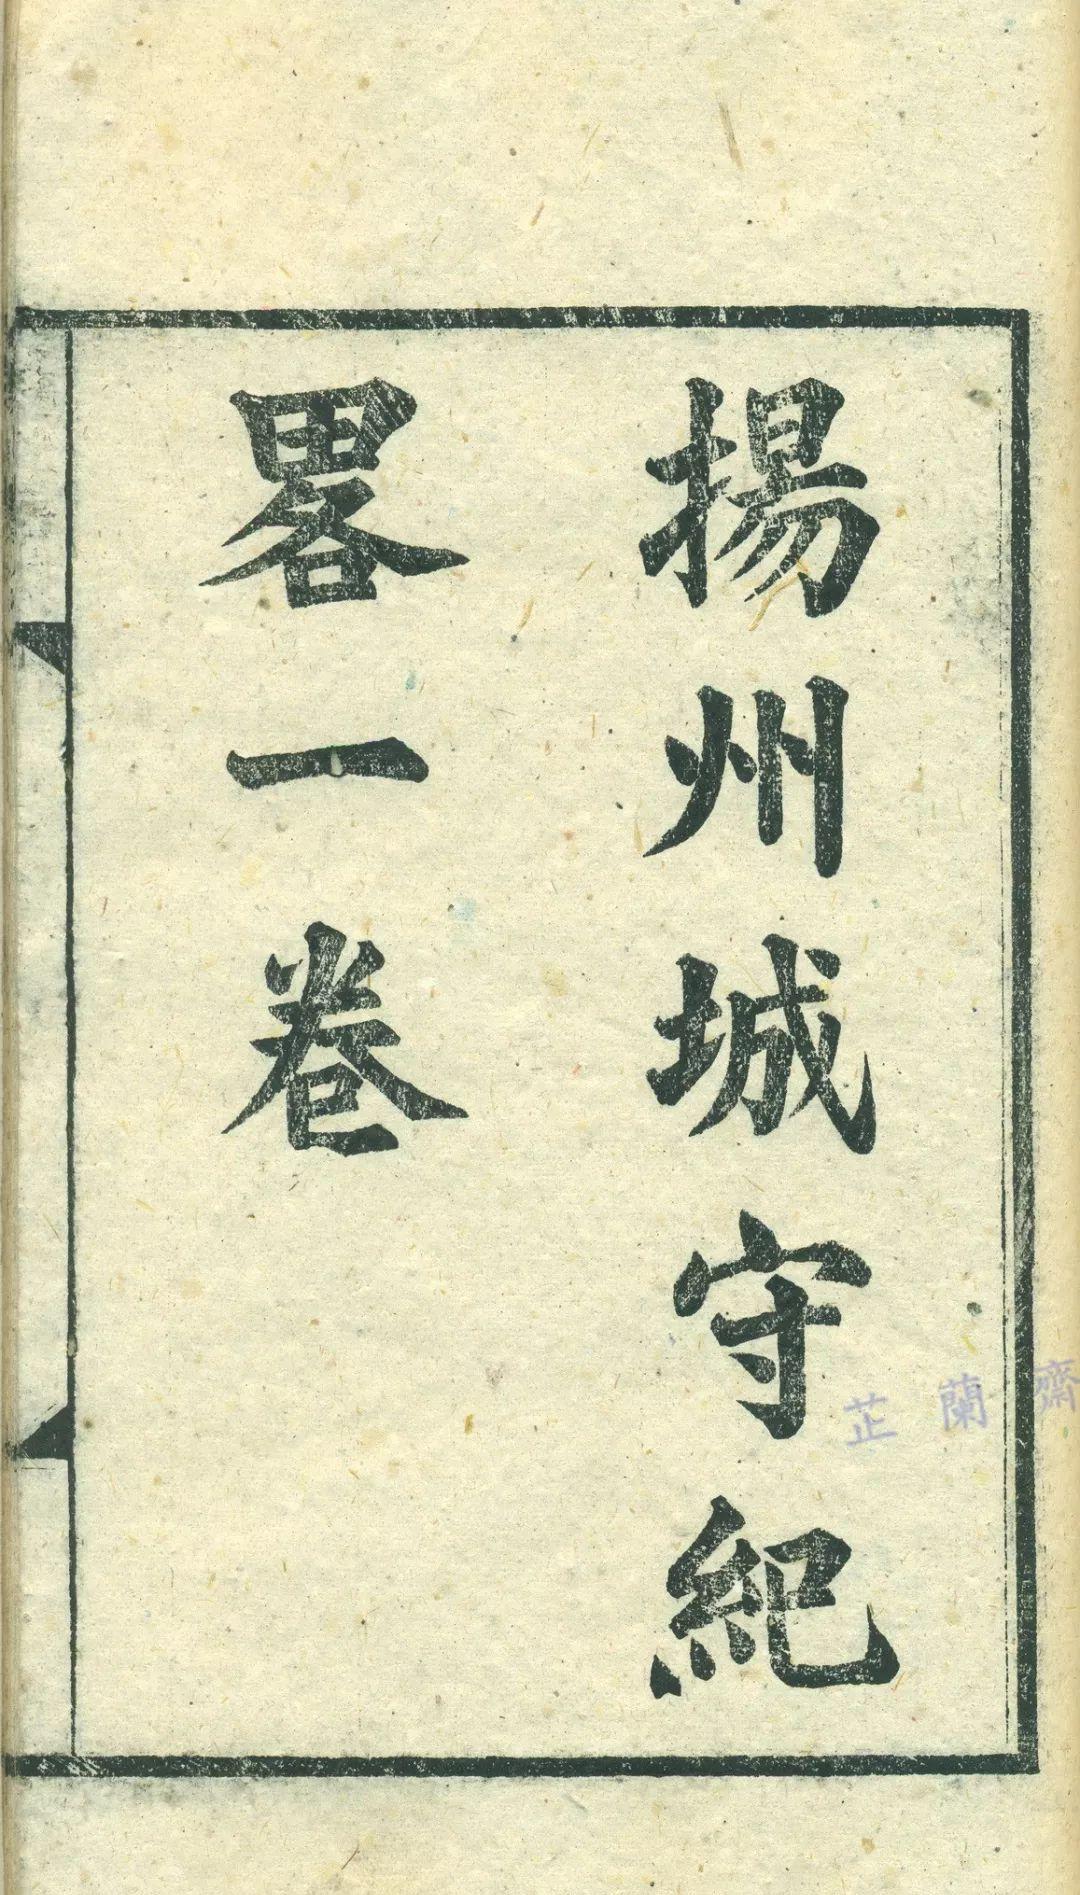 揚州城守紀
畧一卷
芷蘭齋